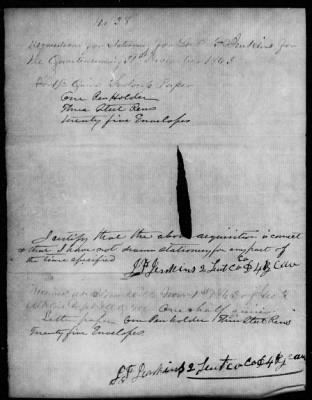 No 28
Requisition for Stationery for Lieut J F Jenkins for
the Quarter ending 31st December 1863
Half Quire Letter Paper
One Pen Holder
Three Steel Pens
Twenty five Envelopes
I certify that the above requisition is correct
& that I have not drawn stationery for any part of
the time specified
J F Jenkins 2 Lieut Co
One half quire
Letter paper One Pen holder Three Steel Pens
Twenty five Envelopes
J F Jenkins 2 Lieut